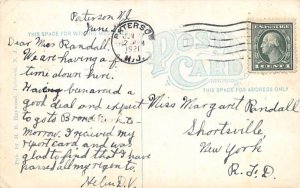 Paterson NJ
June
PATERSON
JUN
12 PM
1921
N.J.
POST
CARD
THIS SPACE FOR
THIS SPACE FOR ADDRESS ONLY
1 CENT 1
Dear Miss Randall,
We are having a fine
time down here.
Having a
good deal and expect
to go to
morrow. I received my
report card and was
glad to find that I have
passed all my regents.
Helen D.V.
Miss Margaret Randall
Shortsville,
New York
R.F.D